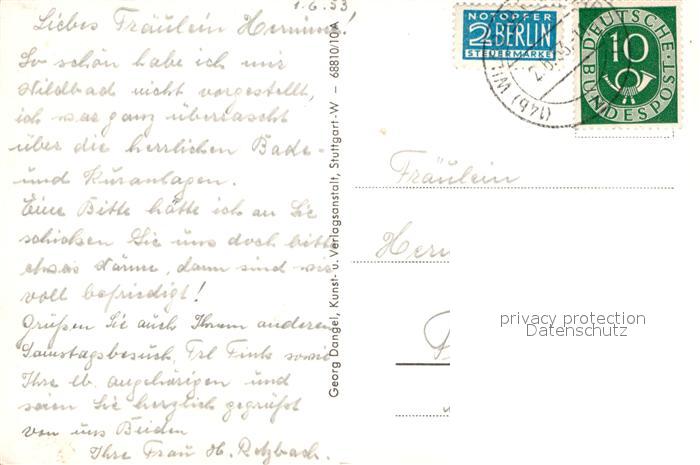 1.6.53
Liebes Fräulein Hermine!
So schön habe ich mir
Wildbad nicht vorgestellt,
ich war ganz überrascht
über die herrlichen Bade-
und Kuranlagen.
Eine Bitte hätte ich an Sie
schicken Sie uns doch bitte
etwas Wärme, dann sind wir
voll befriedigt!
Grüßen Sie auch Ihren anderen
Samstagsbesuch, Frl Fink sowie
Ihre lb. angehörigen und
seien Sie herzlich gegrüßt
von uns Beiden
Ihre Frau H.
Georg Dangel, Kunst- u. Verlagsanstalt, Stuttgart-W - 68810/10 A
NOTOPFER
2 BERLIN
STEUERMARKE
DEUTSCHE
10
BUNDESPOST
(14b) WI
Fräulein
Herm
privacy protection
Datenschutz